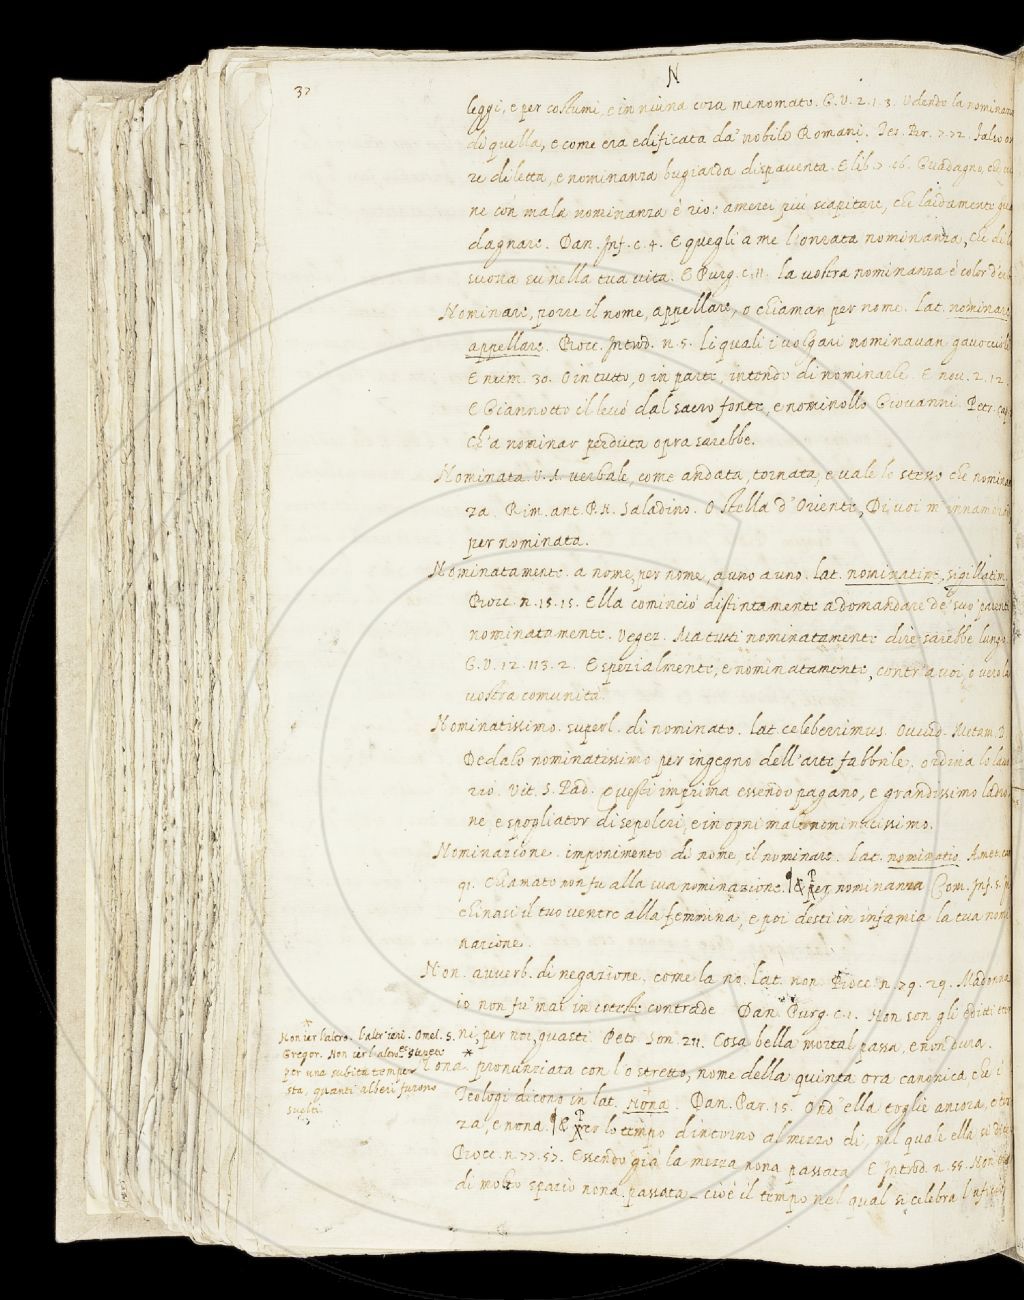 37
N
leggi, e per costumi, e in niuna cosa menomato. G.V. 2. 1. 3. Udendo la nominan
di quella, e come era edificata da' nobili Romani. Tes. Br. 7. 72. Falso
re diletta, e nominanza bugiarda dispaventa. E lib. 7. 46. Guadagno, che
ne con mala nominanza è rio: amerei più scapitare, che laidamente gua
dagnare. Dan. Inf. c. 4. E quegli a me l'onrata nominanza, che di l
suona su nella tua vita. E Purg. c. 11. la vostra nominanza è color d'er
Nominare, porre il nome, appellare, o chiamar per nome. Lat. nominare
appellare. Bocc. Introd. n. 5. Li quali i volgari nominavan gavoccioli
E num. 30. O in tutto, o in parte, intendo di nominarle. E nov. 2. 12.
E Giannotto il levò dal sacro fonte, e nominollo Giovanni. Petr. cap.
Ch'a nominar perduta opra sarebbe.
Nominata. V. A. verbale, come andata, tornata, e vale lo stesso che nomina
za. Rim. ant. P. N. Saladino. O stella d'Oriente, Di voi m'innamorai
per nominata.
Nominatamente. a nome, per nome, a uno a uno. Lat. nominatim, sigillatim.
Bocc. n. 15. 15. Ella cominciò distintamente a domandare de' suoi parenti
nominatamente. Vegez. Ma tutti nominatamente dire sarebbe lungo.
G.V. 12. 113. 2. E spezialmente, e nominatamente, contr'a voi, o vero la
vostra comunità.
Nominatissimo. superl. di nominato. lat. celeberrimus. Ovvid. Metam. D.
Dedalo nominatissimo per ingegno dell'arte fabbrile. ordina lo lavo
rio. Vit. S. Pad. Questi imprima essendo pagano, e grandissimo ladro
ne, e spogliator di sepolcri, e in ogni male nominatissimo.
Nominazione. imponimento di nome, il nominare. Lat. nominatio. Amet. car
91. Chiamato non fu alla sua nominazione. ¶ & Per nominanza Com. Inf. 5. in
chinasi il tuo ventre alla femmina, e poi desti in infamia la tua nomi
nazione.
Non. avverb. di negazione. come la no. Lat. non. Bocc. n. 79. 29. Madonna
io non fu' mai in coteste contrade. Dan. Purg. c. 1. Non son gli editti eter
ni, per noi, guasti. Petr. Son. 211. Cosa bella mortal passa, e non dura.
* Non ier l'altro. l'altr'ieri. Omel. S.
Gregor. Non ier l'altro
per una subita tempe
sta, quanti alberi furono
svelti.
Nona * pronunziata con l'o stretto, nome della quinta ora canonica che i
Teologi dicono in lat. Nona. Dan. Par. 15. Ond'ella toglie ancora, e ter
za, e nona. ¶ & Per lo tempo d'intorno al mezzo dì, nel quale ella si dice
Bocc. n. 77. 57. Essendo già la mezza nona passata. E Introd. n. 55. Non era
di molto spazio nona passata. cioè il tempo nel qual si celebra l'ufizio